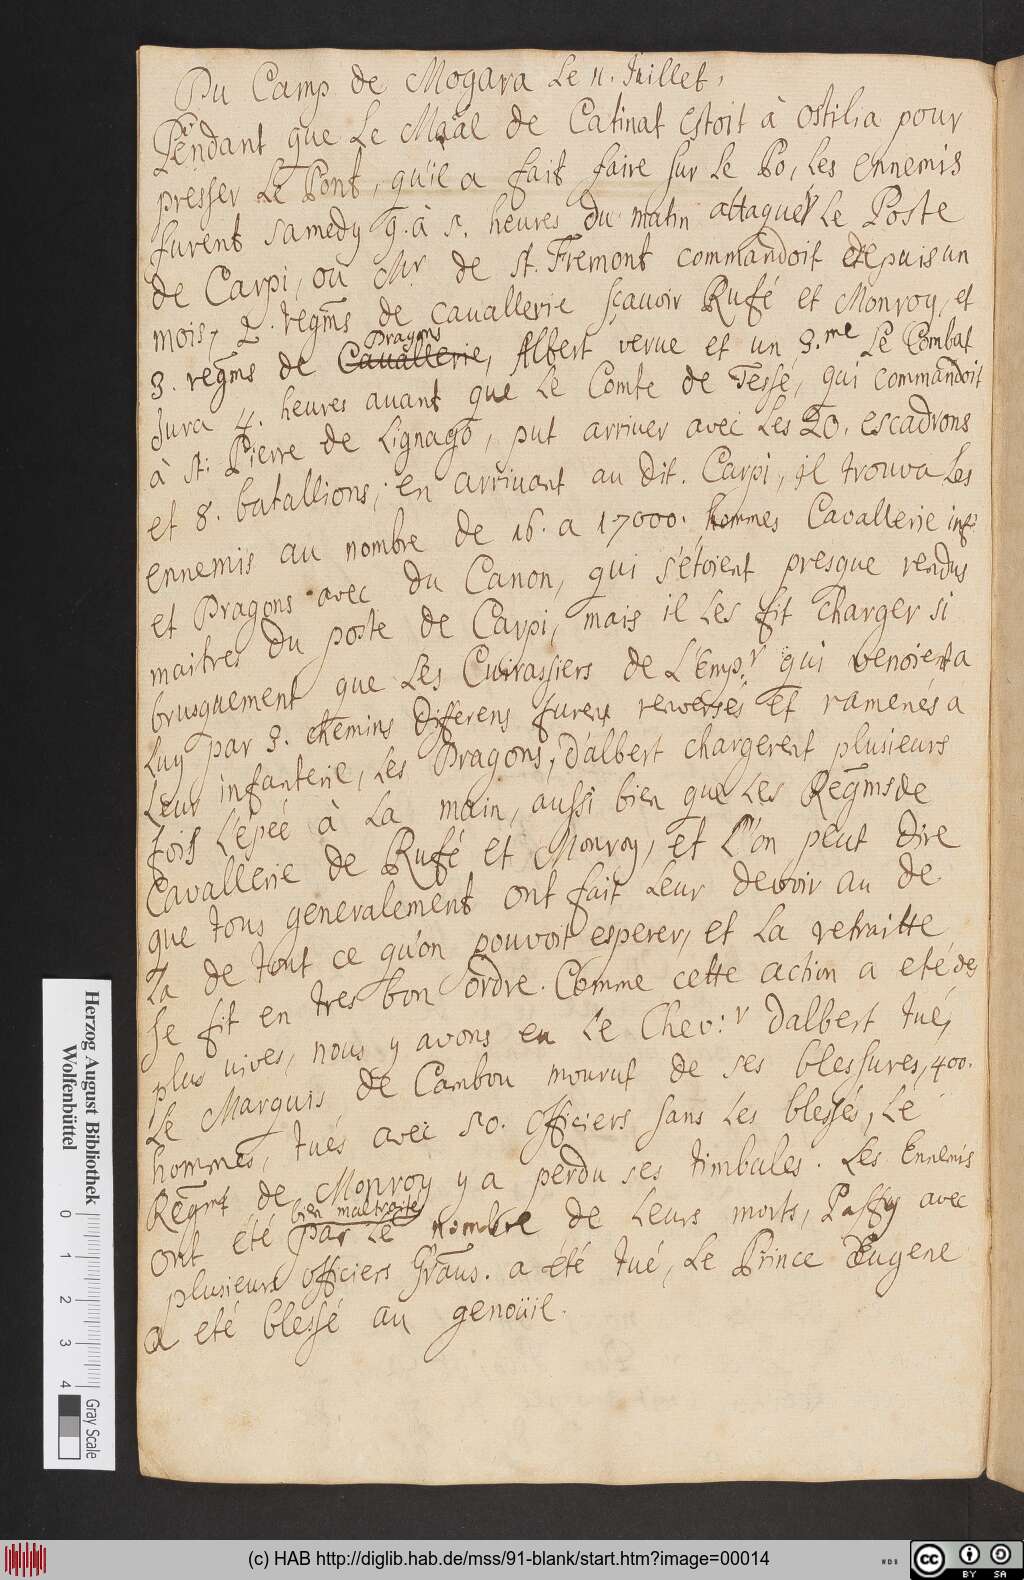 Du Camp de Mogara Le 11. Juillet,
Pendant que Le Maãl de Catinat Estoit à Ostilia pour
presser Le Pont, qu'il a fait faire sur Le Po, Les ennemis
furent samedy 9. à 5. heures du matin attaquer Le Poste
de Carpi, ou Mr. de St. Fremont commandoit depuis un
mois, 2. regm̃s de cavallerie sçavoir Rufé et Monroy, et
Dragons
3. regm̃s de Cavallerie, Albert verue et un 3.me Le Combat
dura 4. heures avant que Le Comte de Tessé, qui commandoit
à St: Pierre de Lignago, put arriver avec Les 20. escadrons
et 8. batallions; en arrivant au dit. Carpi, il trouva Les
ennemis au nombre de 16. a 17000. hommes Cavallerie inf:
et Dragons avec du Canon, qui s'étoient presque rendus
maitres du poste de Carpi, mais il Les fit charger si
brusquement que Les Cuirassiers de L'Emp.r qui venoient a
Luy par 3. chemins differens furent renversés et ramenés à
Leur infanterie, Les Dragons, d'albert chargerent plusieurs
fois L'épeé à La main, aussi bien que Les Regm̃s de
Cavallerie de Rufé et Monroy, et L'on peut dire
que tous generalement ont fait Leur devoir au de
La de tout ce qu'on pouvoit esperer, et La retraitte
se fit en tres bon ordre. Comme cette action a eté des
plus vives, nous y avons eu Le Chev:r Dalbert tué,
Le Marquis de Cambou mourut de ses blessures, 400.
hommes, tués avec 50. Officiers sans Les blessés, Le
Regm̃t de Monroy y a perdu ses timbales. Les Ennemis
bien maltraités
ont été par Le nombre de Leurs morts, Paffy avec
plusieurs officiers Graus. a été tué, Le Prince Eugene
a eté blessé au genoüil.
Herzog August Bibliothek
Wolfenbüttel
0 1 2 3 4
Gray Scale
(c) HAB http://diglib.hab.de/mss/91-blank/start.htm?image=00014
WDB
cc
BY SA